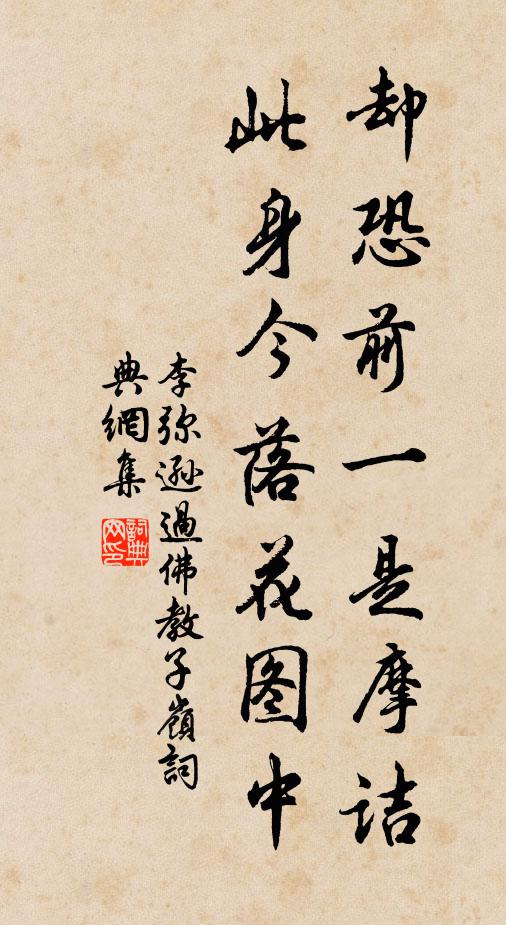 却恐前一是摩詰
此身今落花图中
李弥遜過佛教子嶺詞
典網集
詞典网印